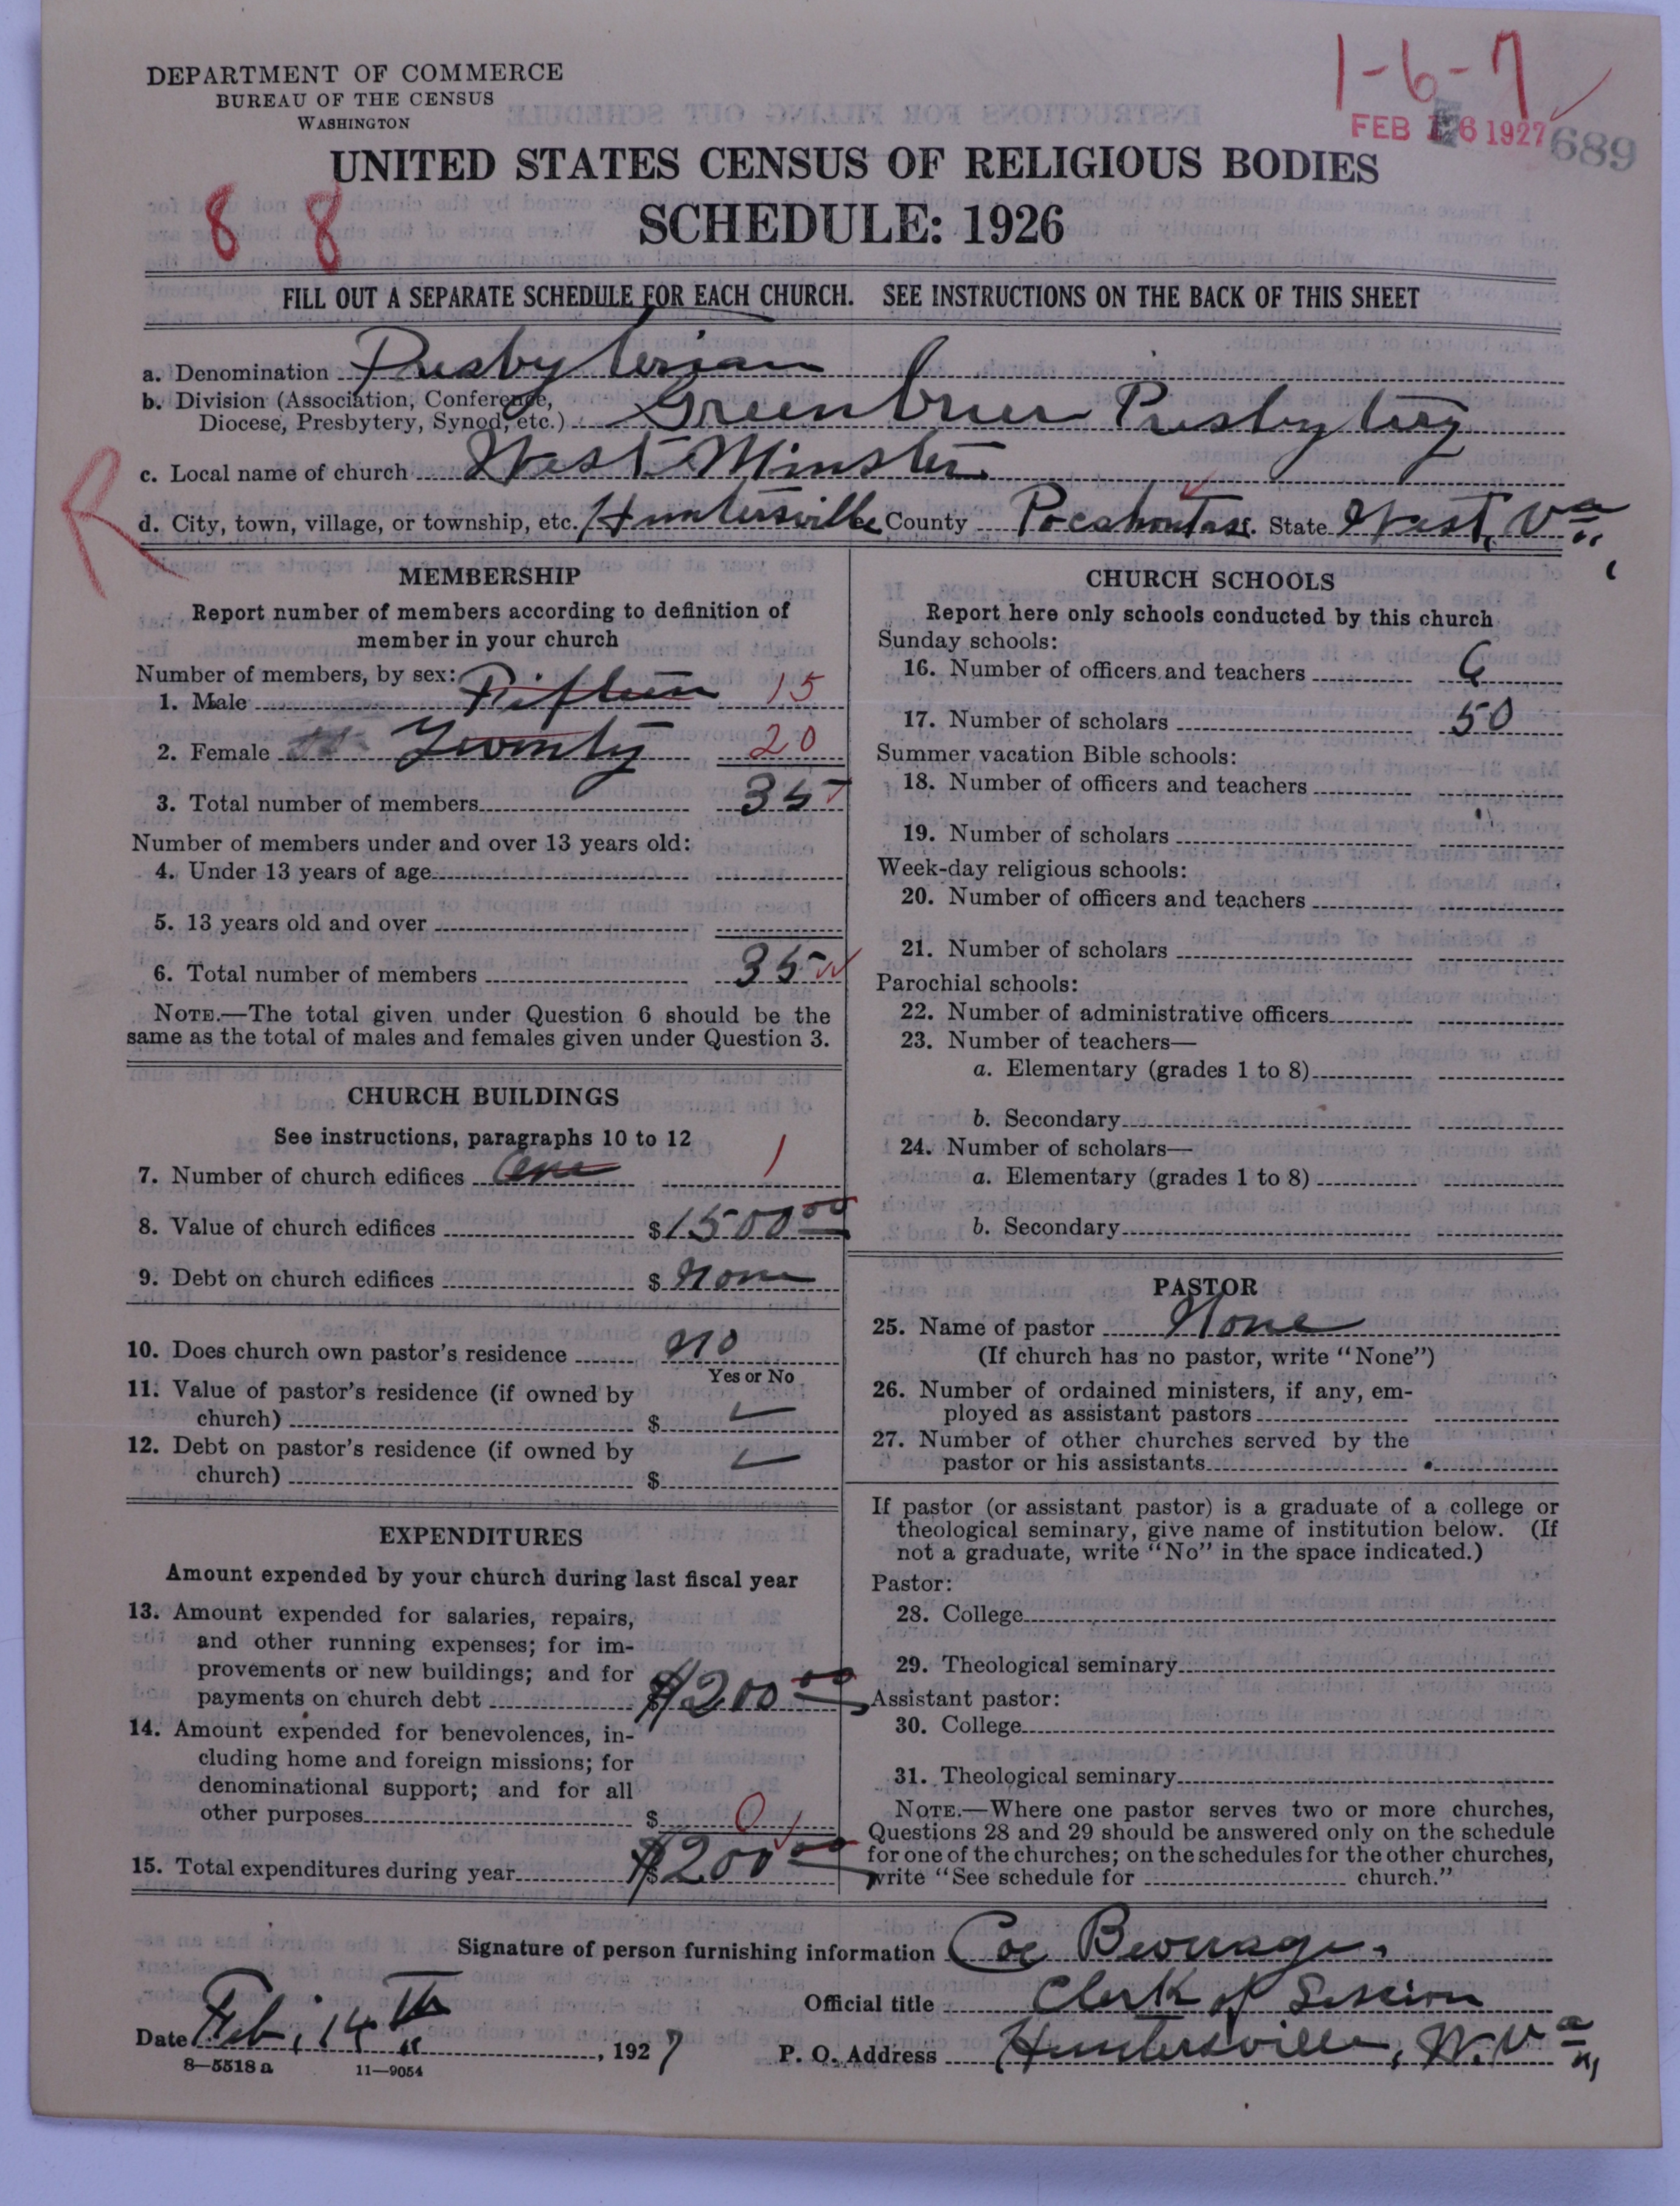 DEPARTMENT OF COMMERCE
BUREAU OF THE CENSUS
WASHINGTON
1-6-7
FEB 16 1927
689
UNITED STATES CENSUS OF RELIGIOUS BODIES
8 8
SCHEDULE: 1926
FILL OUT A SEPARATE SCHEDULE FOR EACH CHURCH. SEE INSTRUCTIONS ON THE BACK OF THIS SHEET
a. Denomination Presbyterian
b. Division (Association, Conference, Diocese, Presbytery, Synod, etc.) Greenbrier Presbytery
c. Local name of church West Minster
R
d. City, town, village, or township, etc. Huntersville County Pocahontas. State West, Va.
MEMBERSHIP
Report number of members according to definition of
member in your church
Number of members, by sex:
1. Male Fifteen 15
2. Female Twenty 20
3. Total number of members 35
Number of members under and over 13 years old:
4. Under 13 years of age
5. 13 years old and over
6. Total number of members 35
NOTE.—The total given under Question 6 should be the
same as the total of males and females given under Question 3.
CHURCH BUILDINGS
See instructions, paragraphs 10 to 12
7. Number of church edifices One 1
8. Value of church edifices $1500 00
9. Debt on church edifices $ None
10. Does church own pastor's residence No
Yes or No
11. Value of pastor's residence (if owned by
church) $
12. Debt on pastor's residence (if owned by
church) $
EXPENDITURES
Amount expended by your church during last fiscal year
13. Amount expended for salaries, repairs,
and other running expenses; for im-
provements or new buildings; and for
payments on church debt $200 00
14. Amount expended for benevolences, in-
cluding home and foreign missions; for
denominational support; and for all
other purposes $ 0
15. Total expenditures during year $200 00
CHURCH SCHOOLS
Report here only schools conducted by this church
Sunday schools:
16. Number of officers and teachers 6
17. Number of scholars 50
Summer vacation Bible schools:
18. Number of officers and teachers
19. Number of scholars
Week-day religious schools:
20. Number of officers and teachers
21. Number of scholars
Parochial schools:
22. Number of administrative officers
23. Number of teachers—
a. Elementary (grades 1 to 8)
b. Secondary
24. Number of scholars—
a. Elementary (grades 1 to 8)
b. Secondary
PASTOR
25. Name of pastor None
(If church has no pastor, write "None")
26. Number of ordained ministers, if any, em-
ployed as assistant pastors
27. Number of other churches served by the
pastor or his assistants
If pastor (or assistant pastor) is a graduate of a college or
theological seminary, give name of institution below. (If
not a graduate, write "No" in the space indicated.)
Pastor:
28. College
29. Theological seminary
Assistant pastor:
30. College
31. Theological seminary
NOTE.—Where one pastor serves two or more churches,
Questions 28 and 29 should be answered only on the schedule
for one of the churches; on the schedules for the other churches,
write "See schedule for church."
Signature of person furnishing information Coe Beverage.
Official title Clerk of Session
Date Feb, 14th, 1927
P. O. Address Huntersville, W. Va,
8—5518 a 11—9054